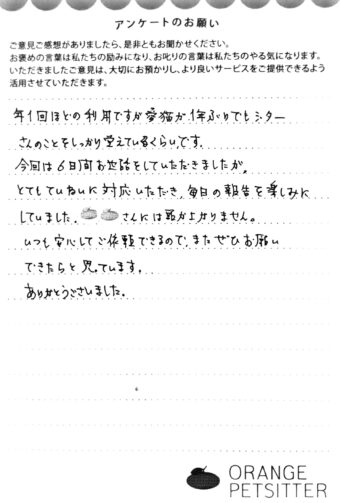 アンケートのお願い
ご意見ご感想がありましたら、是非ともお聞かせください。
お褒めの言葉は私たちの励みになり、お叱りの言葉は私たちのやる気になります。
いただきましたご意見は、大切にお預かりし、より良いサービスをご提供できるよう
活用させていただきます。
年1回ほどの利用ですが愛猫が1年ぶりでもシッター
さんのことをしっかり覚えているくらいです。
今回は6日間お世話をしていただきましたが、
とてもていねいに対応いただき、毎日の報告を楽しみに
していました。さんには頭が上がりません。
いつも安心してご依頼できるので、またぜひお願い
できたらと思っています。
ありがとうございました。
ORANGE
PETSITTER